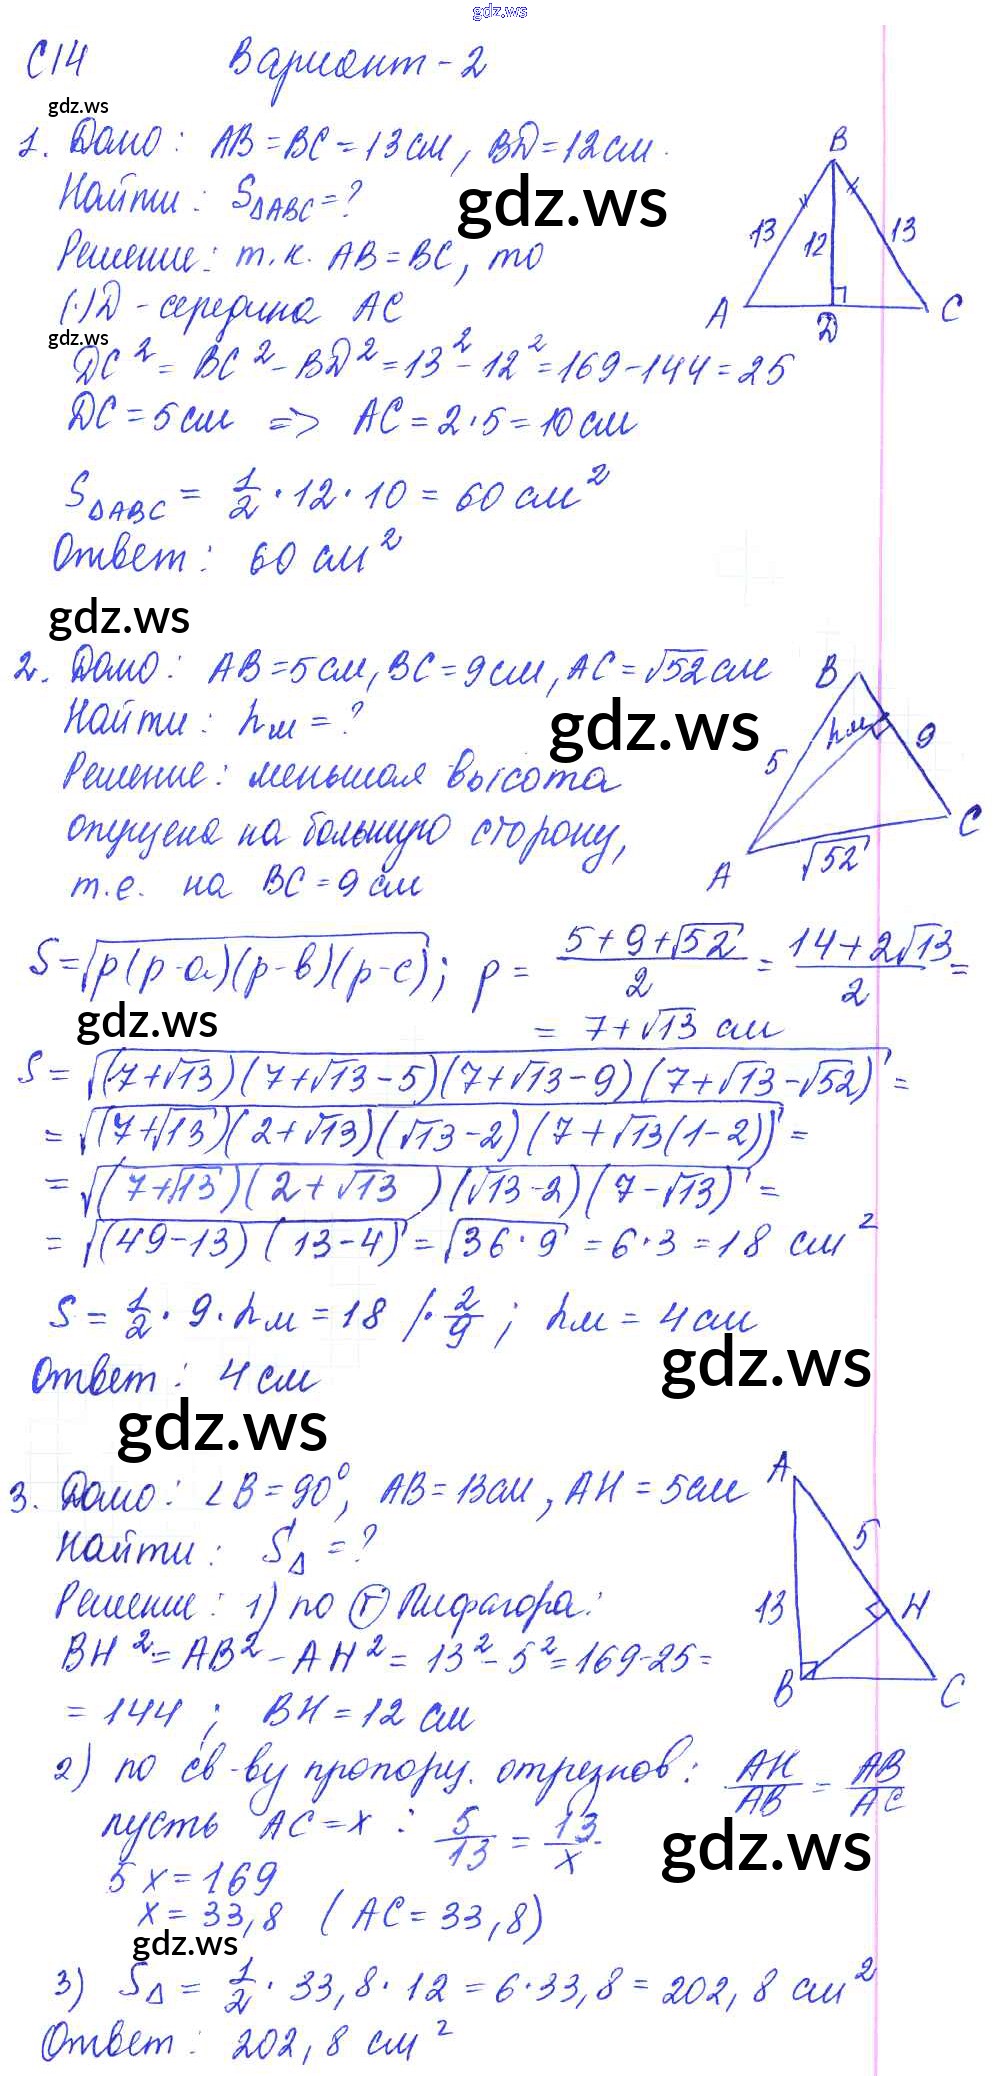 gdz.ws
С14 Вариант-2
gdz.ws
1. Дано: AB=BC=13см, BD=12см.
Найти: S△ABC=?
gdz.ws
Решение: т.к. AB=BC, то
(·)D-середина AC
gdz.ws
DC²= BC²-BD²=13²-12²=169-144=25
DC=5см => AC=2·5=10см
S△ABC = 1/2 · 12 · 10 = 60 см²
Ответ: 60 см²
B
13 12 13
A D C
gdz.ws
2. Дано: AB=5см, BC=9см, AC=√52см
Найти: hм=?
gdz.ws
Решение: меньшая высота
опущена на большую сторону,
т.е. на BC=9см
B
5 hм 9
A √52 C
S=√p(p-a)(p-b)(p-c); p= (5+9+√52)/2 = (14+2√13)/2 =
gdz.ws
= 7+√13 см
S = √(7+√13)(7+√13-5)(7+√13-9)(7+√13-√52) =
= √(7+√13)(2+√13)(√13-2)(7+√13(1-2)) =
= √(7+√13)(2+√13)(√13-2)(7-√13) =
= √(49-13)(13-4) = √36·9 = 6·3 = 18 см²
S = 1/2 · 9 · hм = 18 /· 2/9 ; hм = 4см
gdz.ws
Ответ: 4см
gdz.ws
3. Дано: ∠B=90°, AB=13см, AH=5см
Найти: S△ =?
Решение: 1) по Т Пифагора:
BH²=AB²-AH²= 13²-5²=169-25=
= 144 ; BH=12 см
A
5
13 H
B C
2) по св-ву пропорц. отрезков: AH/AB = AB/AC
пусть AC=x : 5/13 = 13/x
gdz.ws
5x=169
x=33,8 (AC=33,8)
gdz.ws
3) S△ = 1/2 · 33,8 · 12 = 6·33,8 = 202,8 см²
Ответ: 202,8 см²